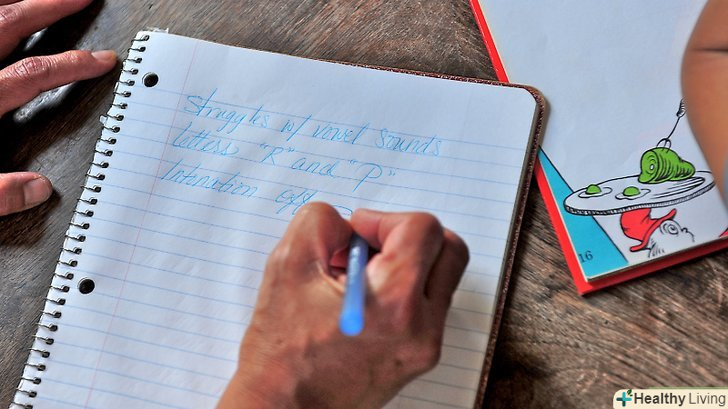 Struggles w/ vowel sounds
letters "R" and "P"
Intonation off
16
Healthy Living